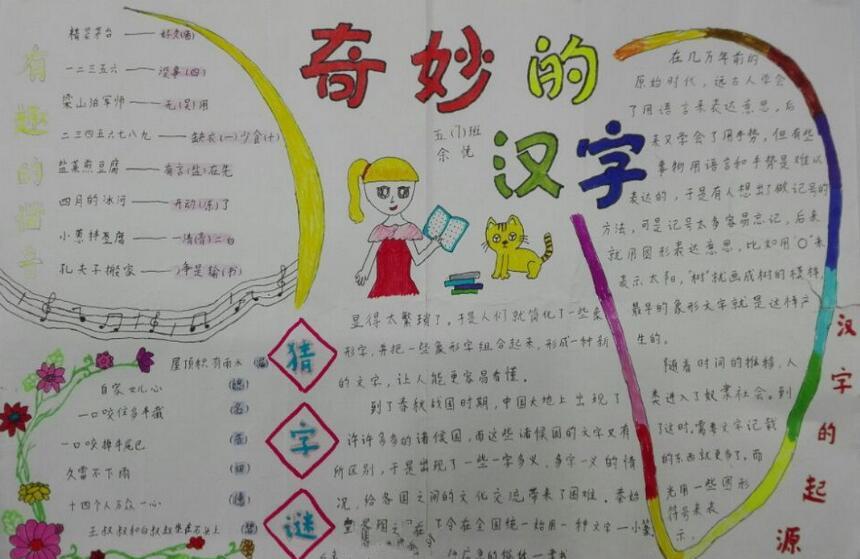 奇妙的
汉字
五(1)班
余悦
有趣的谐音
一二三五六——没事(四)
梁山泊军师——无(吴)用
二三四五六七八九——缺衣(一)少食(十)
盐煎煎豆腐——有言(盐)在先
四月的冰河——开动(冻)了
小葱拌豆腐——一清(青)二白
孔夫子搬家——净是输(书)
猜字谜
屋顶积有雨水
自家女儿心
一口咬住多半截
一口咬掉牛尾巴
久雷不下雨
十四个人分一心
汉字的起源
在几万年前的
原始时代，远古人学会
了用语言来表达意思，后
来又学会了用手势，但有些
事物用语言和手势是难以
表达的，于是有人想出做记号的
方法，可是记号太多容易忘记，后来
就用图形表达意思，比如用"O"来
表示太阳，"树"就画成树的模样，
最早的象形文字就是这样产
生的。
随着时间的推移，人
类进入了奴隶社会。到
了这时，需要文字记载
的东西就更多了。而
光用一些图形
符号来表
示，
显得太繁琐了。于是人们就简化了一些象
形字，并把一些象形字组合起来，形成一种新
的文字，让人能更容易看懂。
到了春秋战国时期，中国大地上出现了
许许多多的诸侯国，而这些诸侯国的文字又有
所区别，于是出现了一些一字多义，多字一义的情
况，给各国之间的文化交流带来了困难。秦始
令在全国统一始用一种文字—小篆